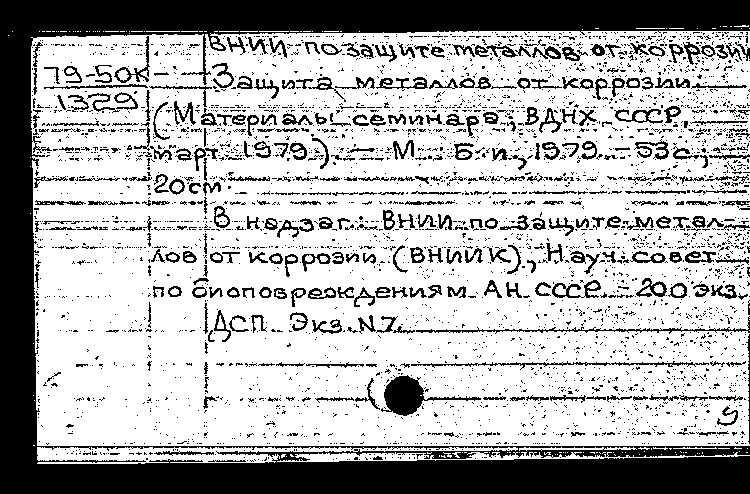 ВНИИ по защите металлов от коррозии
79-50К
1329
Защита металлов от коррозии.
(Материалы семинара, ВДНХ СССР,
март 1979). — М.: Б. и., 1979. - 53с.;
20см.
В надзаг.: ВНИИ по защите метал-
лов от коррозии (ВНИИК), Науч. совет
по биоповреждениям АН СССР. - 200 экз.
ДСП. Экз. N7.